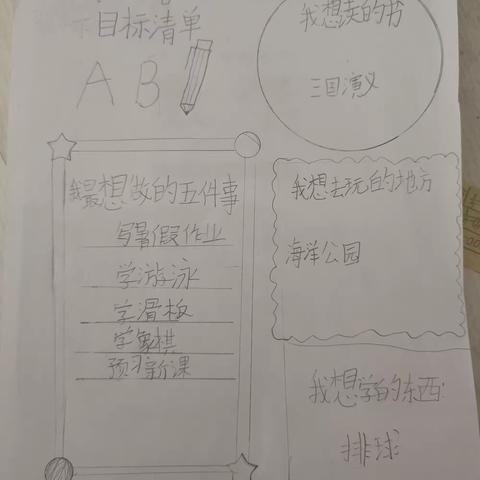 目标清单
AB
我想读的书
三国演义
我最想做的五件事
写暑假作业
学游泳
学滑板
学象棋
预习新课
我想去玩的地方
海洋公园
我想学的东西
排球